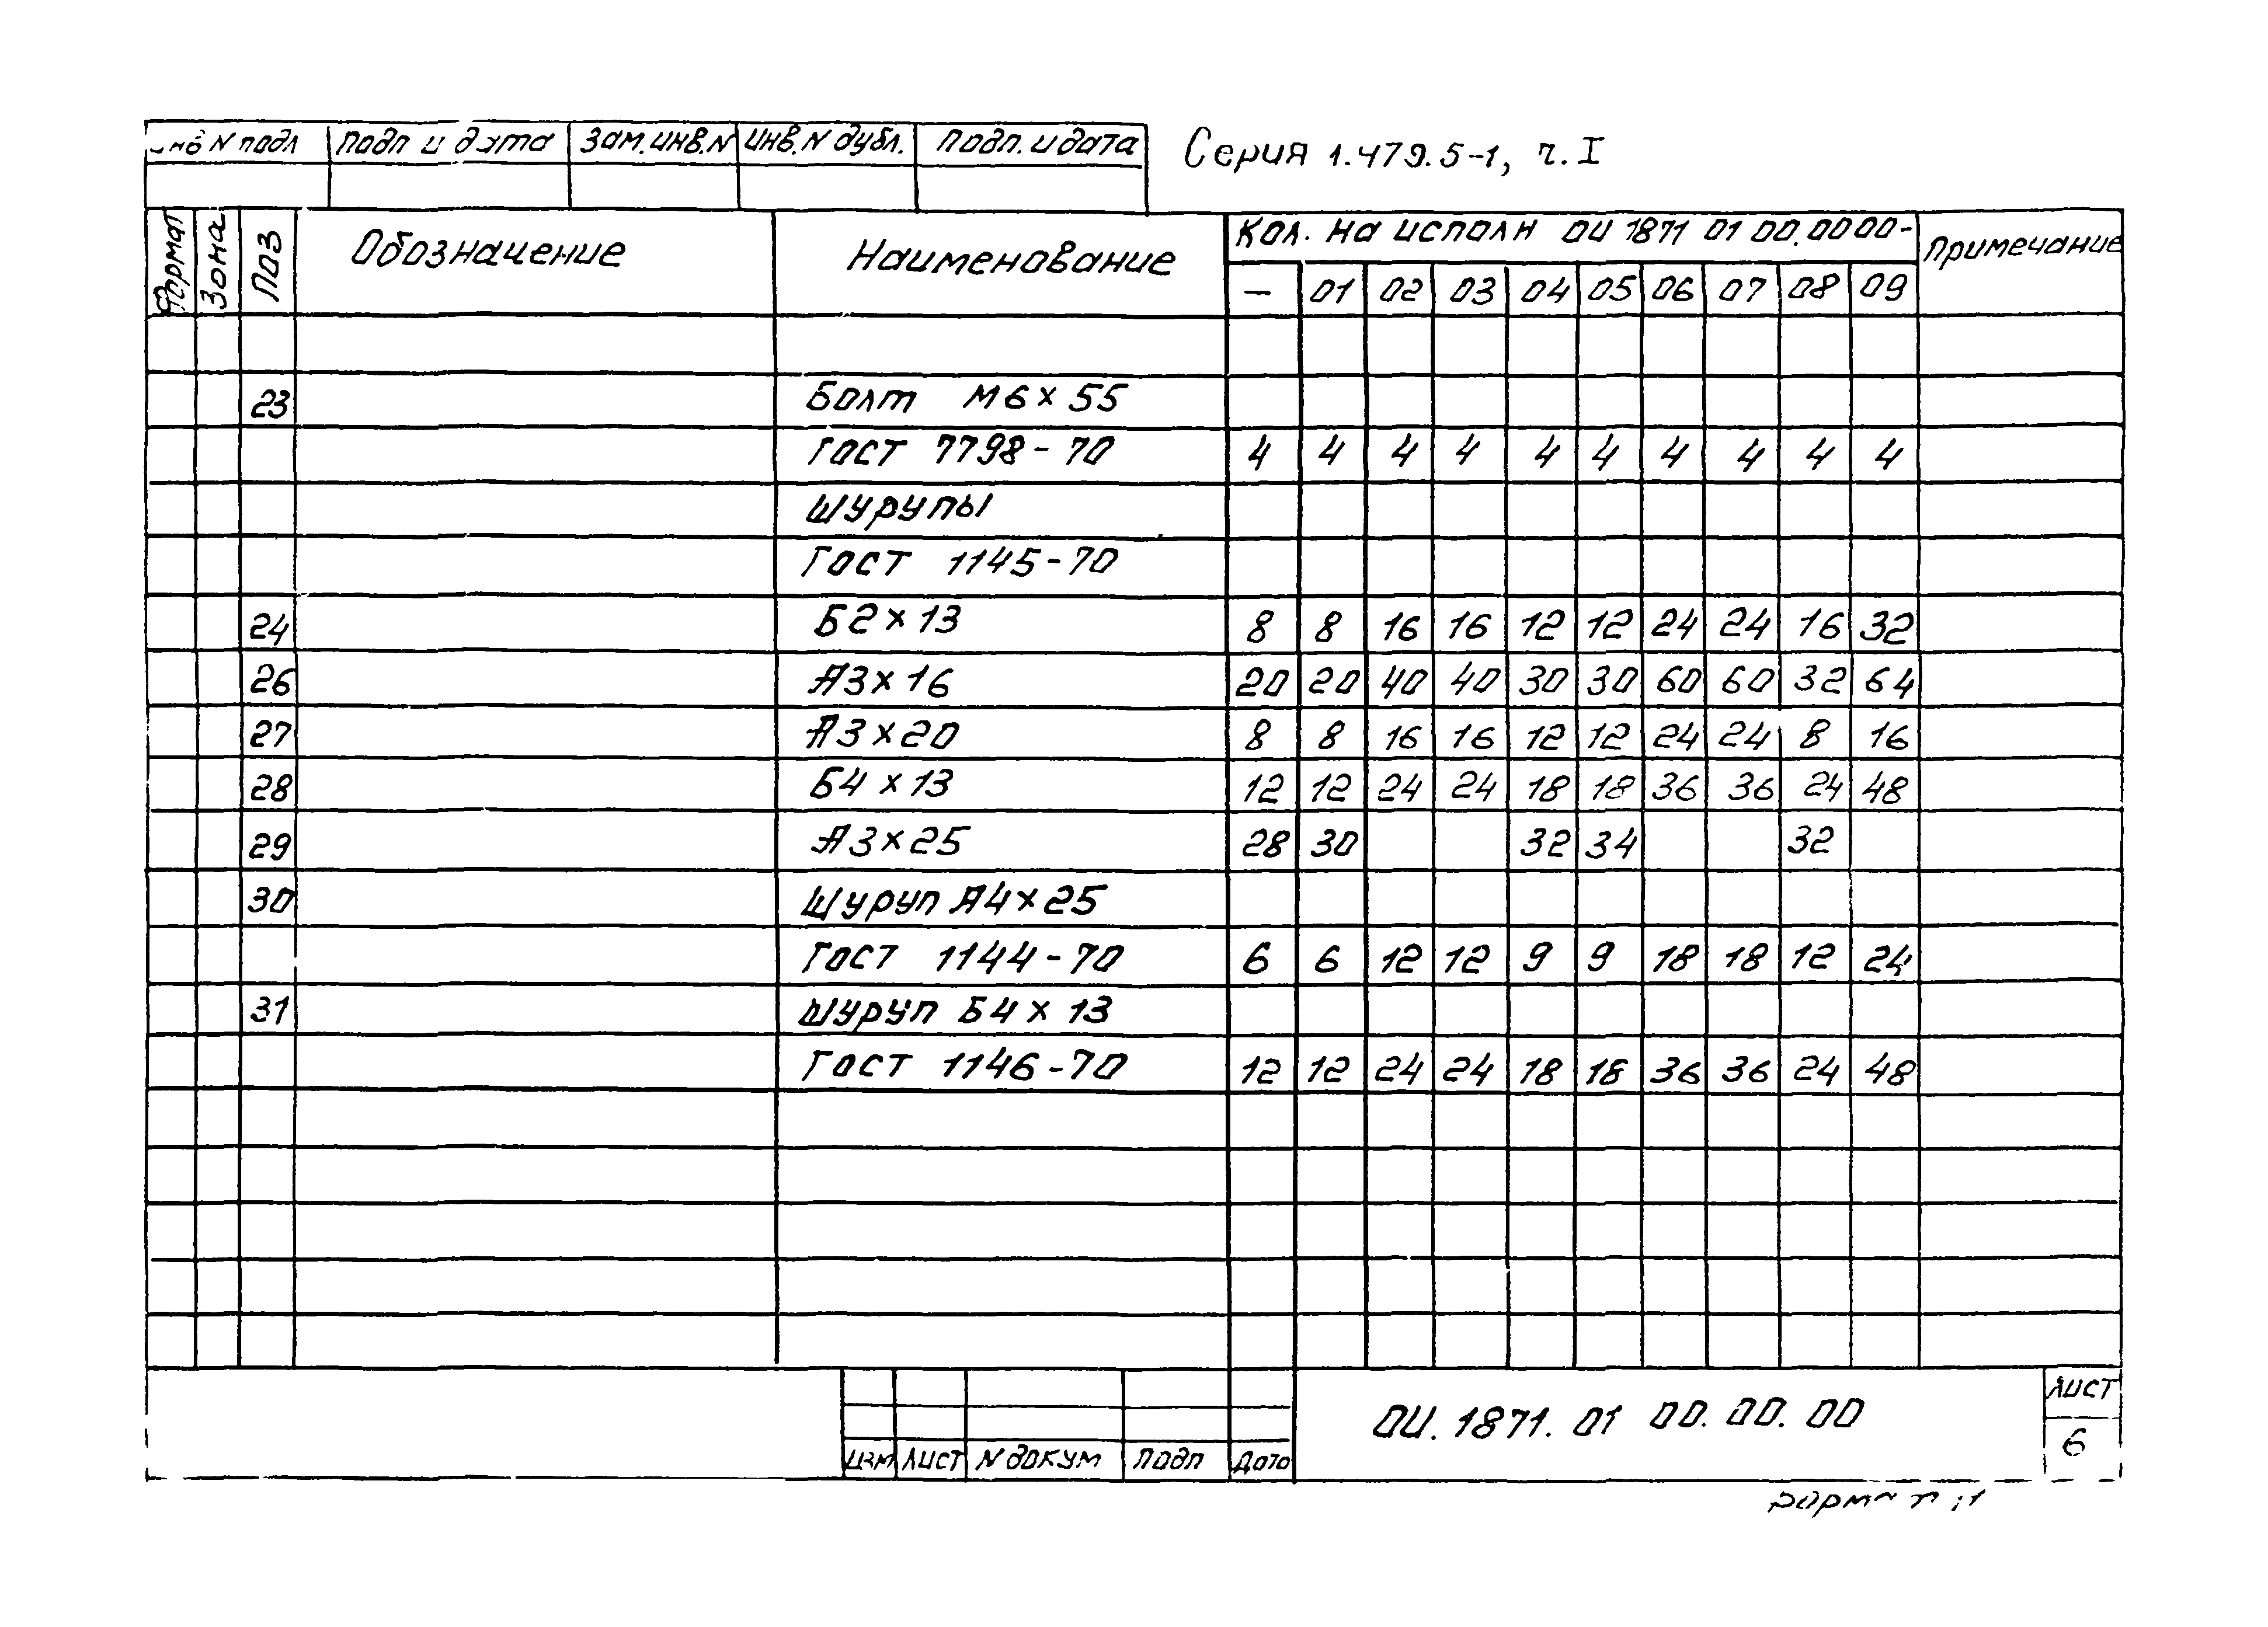 инв N подл | Подп и дата | Зам.инв.N | Инв.N дубл. | Подп. и дата
Серия 1.479.5-1, ч.I
Формат | Зона | Поз | Обозначение | Наименование | Кол. на исполн ОИ 1871 01 00.0000- | Примечание
– | 01 | 02 | 03 | 04 | 05 | 06 | 07 | 08 | 09
23 | Болт М6×55
Гост 7798-70 | 4 | 4 | 4 | 4 | 4 | 4 | 4 | 4 | 4 | 4
Шурупы
Гост 1145-70
24 | Б2×13 | 8 | 8 | 16 | 16 | 12 | 12 | 24 | 24 | 16 | 32
26 | А3×16 | 20 | 20 | 40 | 40 | 30 | 30 | 60 | 60 | 32 | 64
27 | А3×20 | 8 | 8 | 16 | 16 | 12 | 12 | 24 | 24 | 8 | 16
28 | Б4×13 | 12 | 12 | 24 | 24 | 18 | 18 | 36 | 36 | 24 | 48
29 | А3×25 | 28 | 30 | 32 | 34 | 32
30 | Шуруп А4×25
Гост 1144-70 | 6 | 6 | 12 | 12 | 9 | 9 | 18 | 18 | 12 | 24
31 | Шуруп Б4×13
Гост 1146-70 | 12 | 12 | 24 | 24 | 18 | 18 | 36 | 36 | 24 | 48
ОИ. 1871. 01 00. 00. 00
Лист
6
Изм | Лист | N докум | Подп | Дата